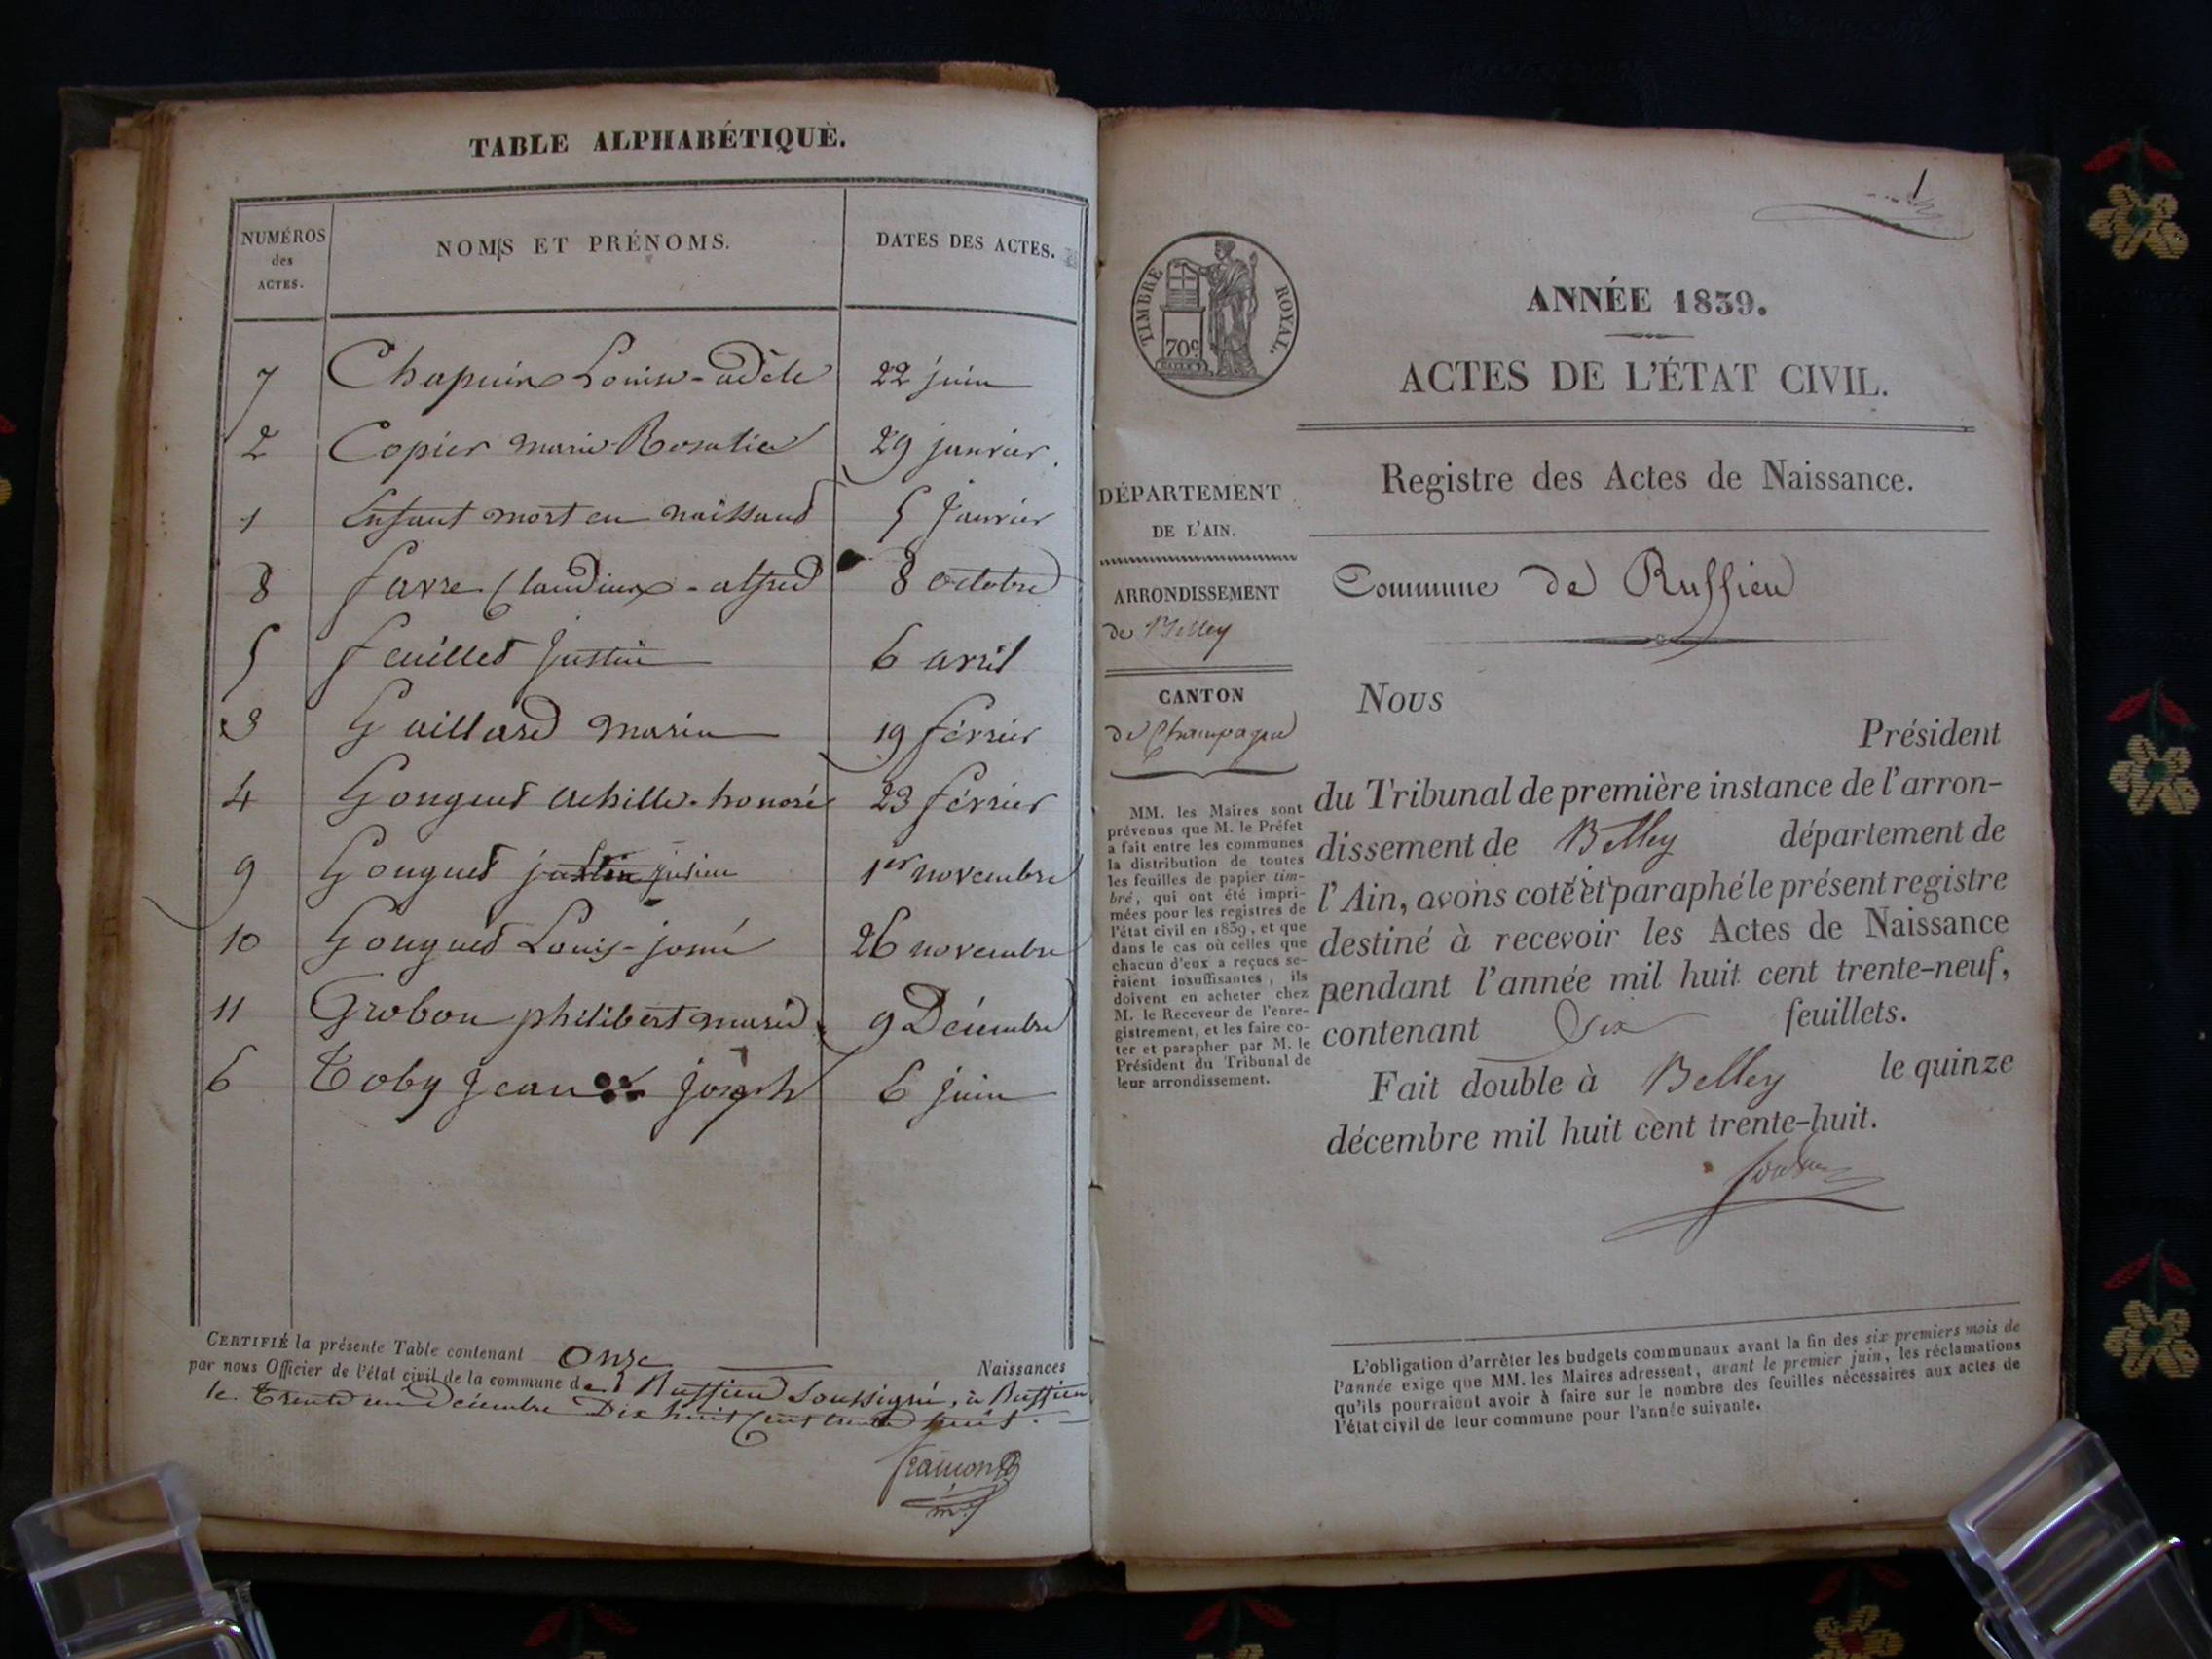 TABLE ALPHABÉTIQUE.
NUMÉROS des ACTES.
NOMS ET PRÉNOMS.
DATES DES ACTES.
7 Chapuis Louise-adèle 22 juin
2 Copier marie Rosalie 29 janvier.
1 Enfant mort en naissant 5 janvier
8 favre Claudius-alfred 8 octobre
5 feuillet justin 6 avril
3 Gaillard marie 19 février
4 Gouguet achille-honoré 23 février
9 Gouguet 1er novembre
10 Gouguet Louis-josué 26 novembre
11 Grobon philibert marie 9 Décembre
6 Toby jean joseph 6 juin
CERTIFIÉ la présente Table contenant Onze Naissances
par nous Officier de l'état civil de la commune de Ruffieu soussigné, à Ruffieu
le trente un Décembre Dix huit Cent trente huit.
1
TIMBRE ROYAL.
70c
ANNÉE 1839.
ACTES DE L'ÉTAT CIVIL.
Registre des Actes de Naissance.
DÉPARTEMENT
DE L'AIN.
ARRONDISSEMENT
de Belley
CANTON
de Champagne
MM. les Maires sont
prévenus que M. le Préfet
a fait entre les communes
la distribution de toutes
les feuilles de papier tim-
bré, qui ont été impri-
mées pour les registres de
l'état civil en 1839, et que
dans le cas où celles que
chacun d'eux a reçues se-
raient insuffisantes, ils
doivent en acheter chez
M. le Receveur de l'enre-
gistrement, et les faire co-
ter et parapher par M. le
Président du Tribunal de
leur arrondissement.
Commune de Ruffieu
Nous
Président
du Tribunal de première instance de l'arron-
dissement de Belley département de
l'Ain, avons coté et paraphé le présent registre
destiné à recevoir les Actes de Naissance
pendant l'année mil huit cent trente-neuf,
contenant Six feuillets.
Fait double à Belley le quinze
décembre mil huit cent trente-huit.
L'obligation d'arrêter les budgets communaux avant la fin des six premiers mois de
l'année exige que MM. les Maires adressent, avant le premier juin, les réclamations
qu'ils pourraient avoir à faire sur le nombre des feuilles nécessaires aux actes de
l'état civil de leur commune pour l'année suivante.